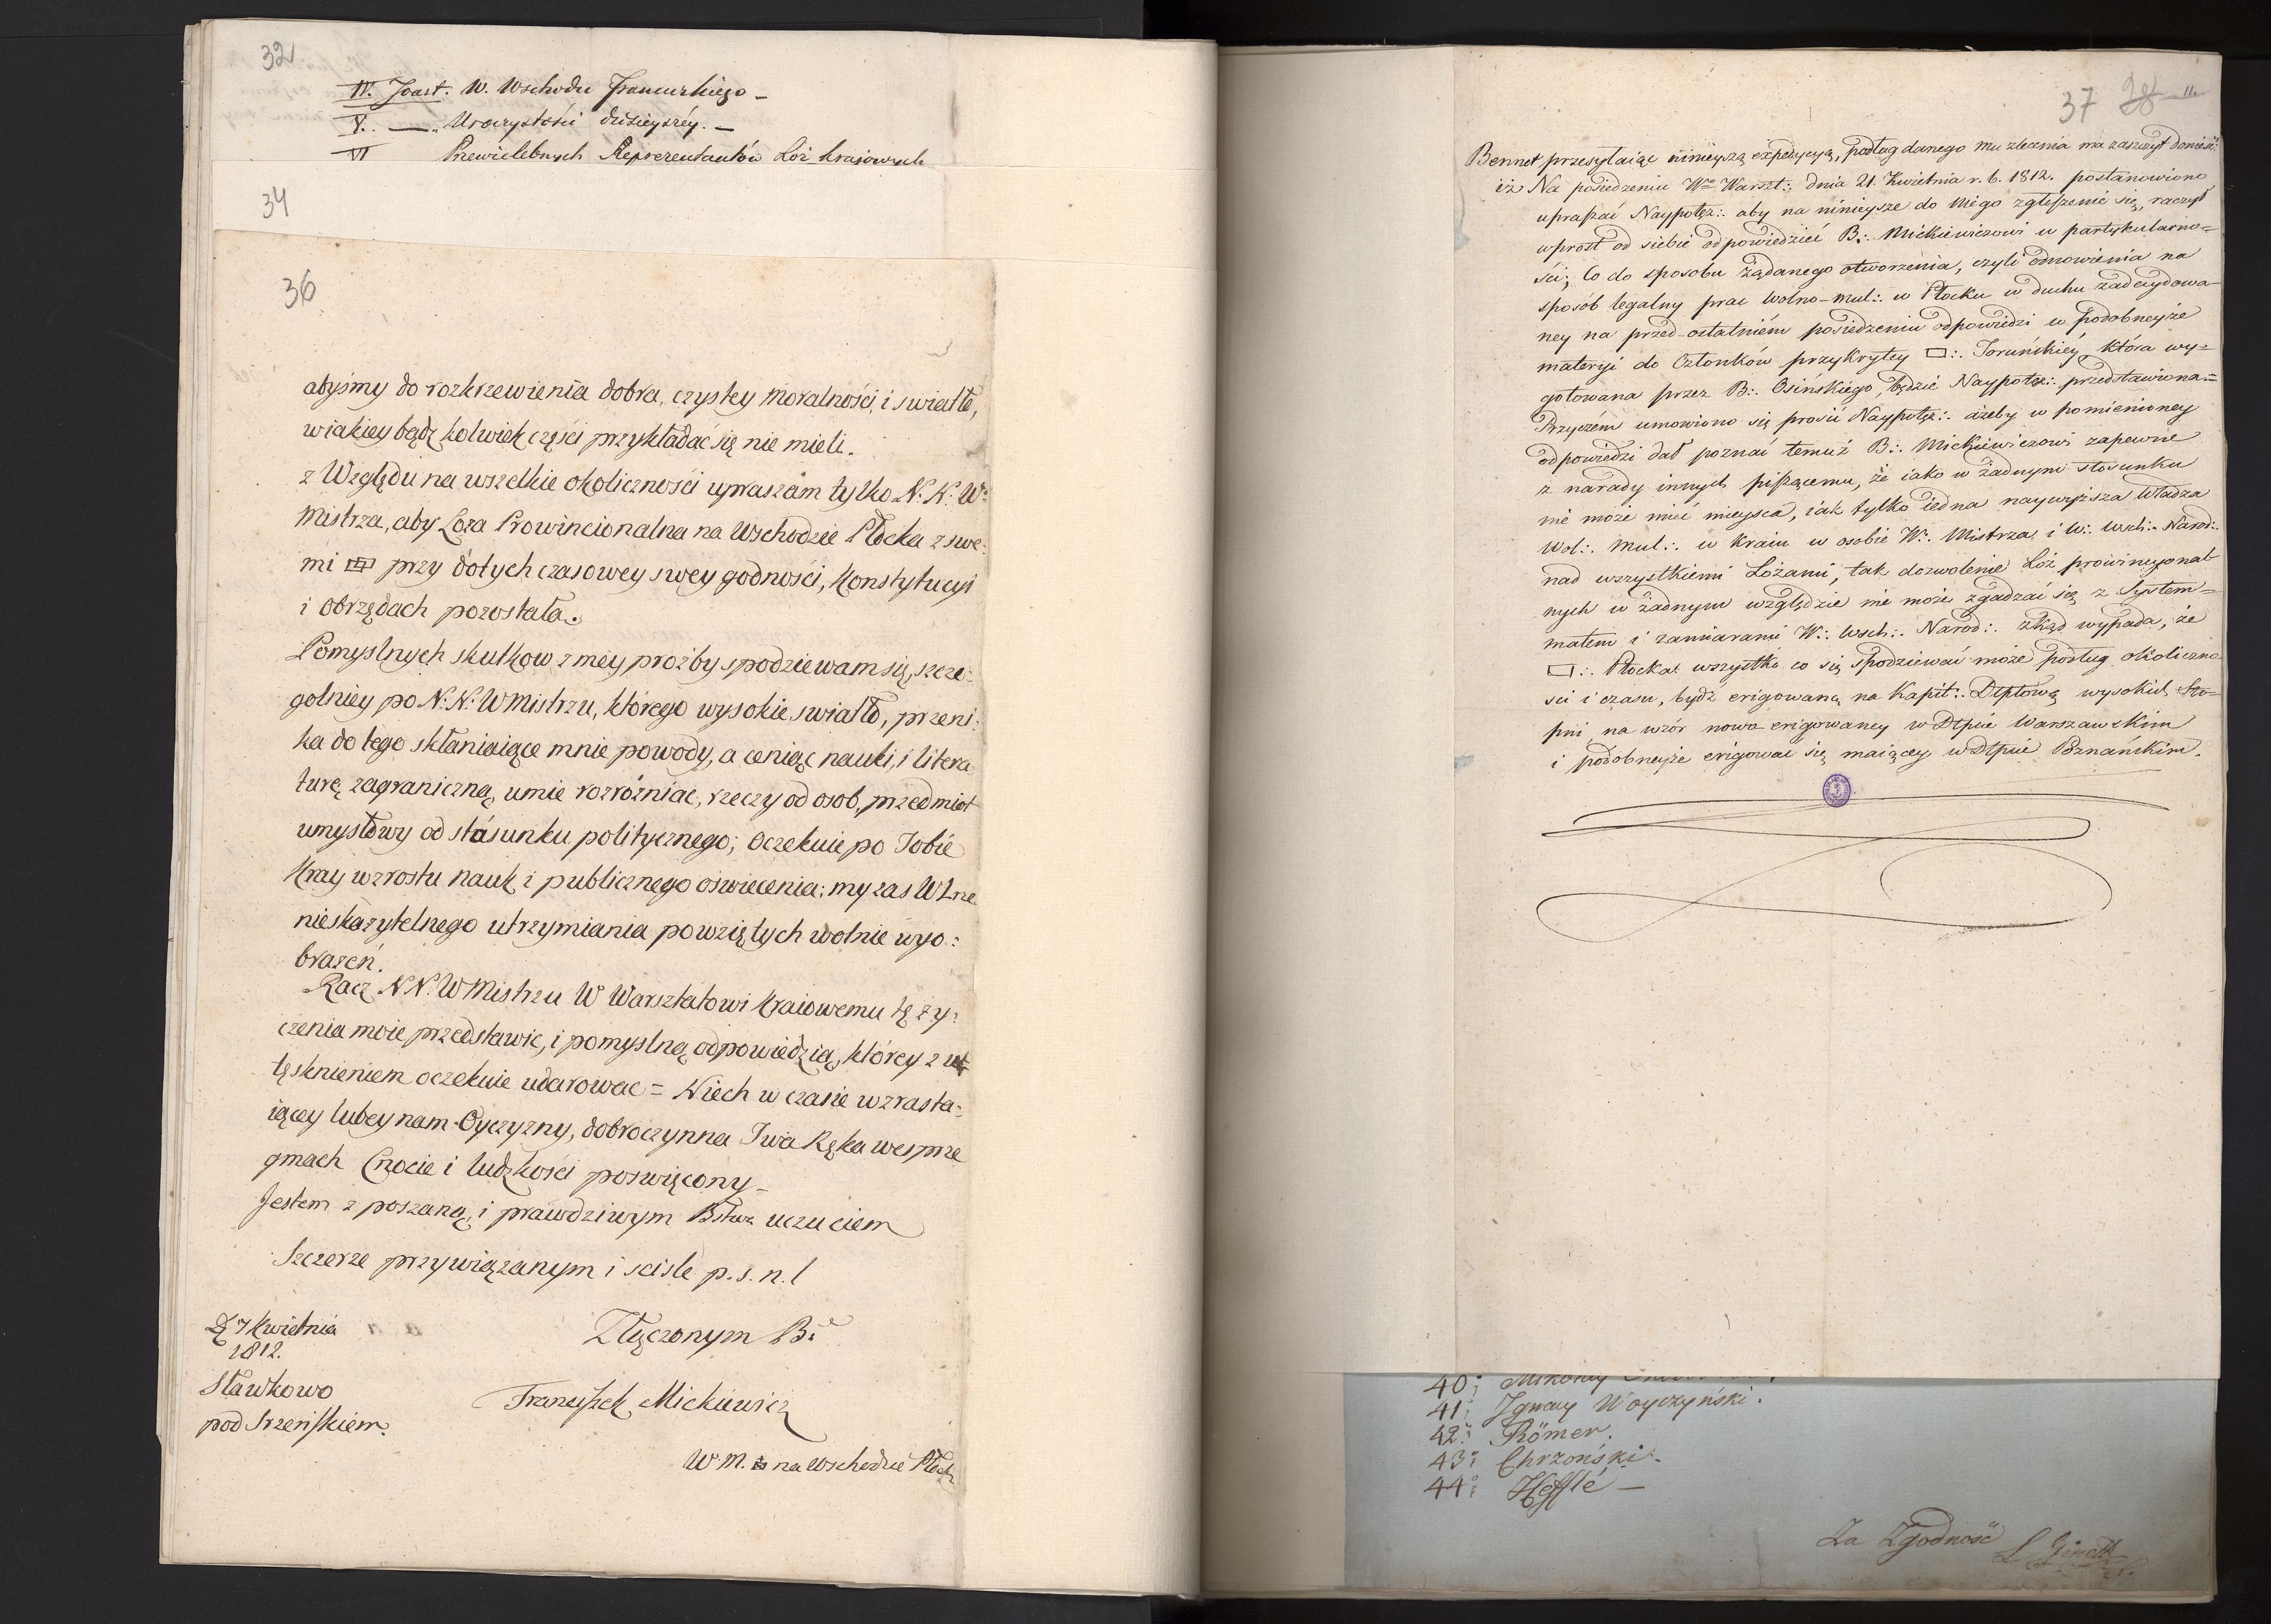 32
IV. Toast. W. Wschodu Francuzkiego _
V. — Uroczystości dzisieyszéy. —
VI Przewielebnych Reprezentantów Lóż krajowych
34
36
abyśmy do rozkrzewienia dobra, czystey moralności, i swiatła,
w iakiey bądz kolwiek części przykładać się nie mieli.
z Względu na wszelkie okoliczności upraszam tylko N. N. W.
Mistrza, aby Loża Prowincionalna na Wschodzie Płocka z swe:
mi przy dotychczasowey swey godności, Konstytucyi
i obrzędach pozostała.
Pomyslnych skutkow z mey prozby spodziewam się, szcze:
golniey po N. N. W Mistrzu, którego wysokie swiatło, przeni:
ka do tego skłaniaiące mnie powody, a ceniąc nauki, i litera
turę zagraniczną, umie rozróżniac, rzeczy od osob, przedmiot
umysłowy od stósunku politycznego; Oczekuie po Tobie
Kray wzrostu nauk i publicznego oswiecenia; my zas WLne
nieskazytelnego utrzymiania powziętych wolnie wyo:
brazeń.
Racz N N. W Mistrzu W Warsztatowi Kraiowemu tę ży:
czenia moie przedstawic, i pomyslną odpowiedzią, którey z
tęsknieniem oczekuie udarowac = Niech w czasie wzrasta:
iącey lubey nam Oyczyzny, dobroczynna Twa Ręka wesprze
gmach Cnocie i ludzkości poswięcony _
Jestem z poszaną, i prawdziwym uczuciem
Szczerze przywiązanym i scisle p. s. n. l
D 7 Kwietnia
1812.
Złączonym B:
Sławkowo
pod Srzeńskiem.
Franciszek Mickiewicz
W M. na Wschodzie Płock
37 28
Bennet przesyłaiąc ninieyszą expedycyą, podług danego mu zlecenia ma zaszczyt donieść
iż Na posiedzeniu Wo Warszt:. dnia 21. Kwietnia r. b. 1812. postanowiono
upraszać Naypotęż:. aby na ninieysze do Niego zgłoszenie się, raczył
wprost od siebie odpowiedzieć B:. Mickiewiczowi w partykularno=
ści; Co do sposobu żądanego otworzenia, czyli odnowienia na
sposób legalny prac wolno-mul:. w Płocku w duchu zadecydowa-
ney na przed-ostatniém posiedzeniu odpowiedzi w podobneyże
materyi do Członków przykrytey □:. Toruńskiéy, która wy=
gotowana przez B:. Osińskiego, będzie Naypotęż:. przedstawiona=
Przyczém umowiono się prosić Naypotęż:. ażeby w pomienioney
odpowiedzi dał poznać temuż B:. Mickiewiczowi zapewne
z narady innych piszącemu, że iako w żadnym stosunku
nie może mieć mieysca, iak tylko iedna naywyższa Władza
Wol:. Mul:. w Kraiu w osobie W:. Mistrza i W:. Wsch:. Narod:.
nad wszystkiemi Lożami, tak dozwolenie Lóż prowincyonal
nych w żadnym względzie nie może zgadzać się z System=
matem i zamiarami W:. Wsch:. Narod:. zkąd wypada, że
□:. Płocka wszystko co się spodziewać może podług okoliczno
sci i czasu, bydź erigowaną na Kapit:. Dtptową wysokich Sto-
pni na wzór nowo erigowaney w Dtpie Warszawskim
i podobneyże erigować się maiącey w Dtpie Poznańskim.
40:
41: Ignacy Woyczyński.
42: Römer.
43: Chrzoński.
44: Hefflé —
Za Zgodność